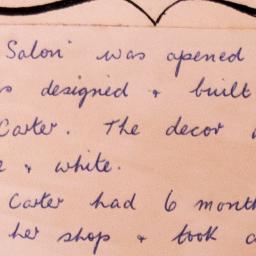 Salon was opened
designed + built
Carter. The decor
+ white.
Carter had 6
her shop + took